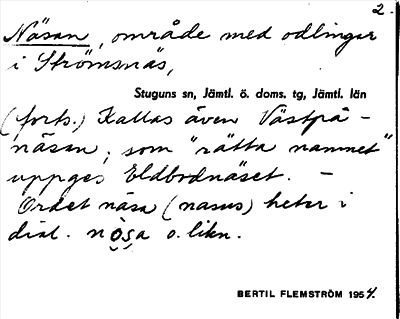 2.
Näsan, område med odlingar
i Strömsnäs,
Stuguns sn, Jämtl. ö. doms. tg, Jämtl. län
(forts.) Kallas även Västpå-
näsan, som "rätta namnet"
uppges Eldbodnäset. –
Ordet näsa (nasus) heter i
dial. nòsa o. likn.
BERTIL FLEMSTRÖM 1954.